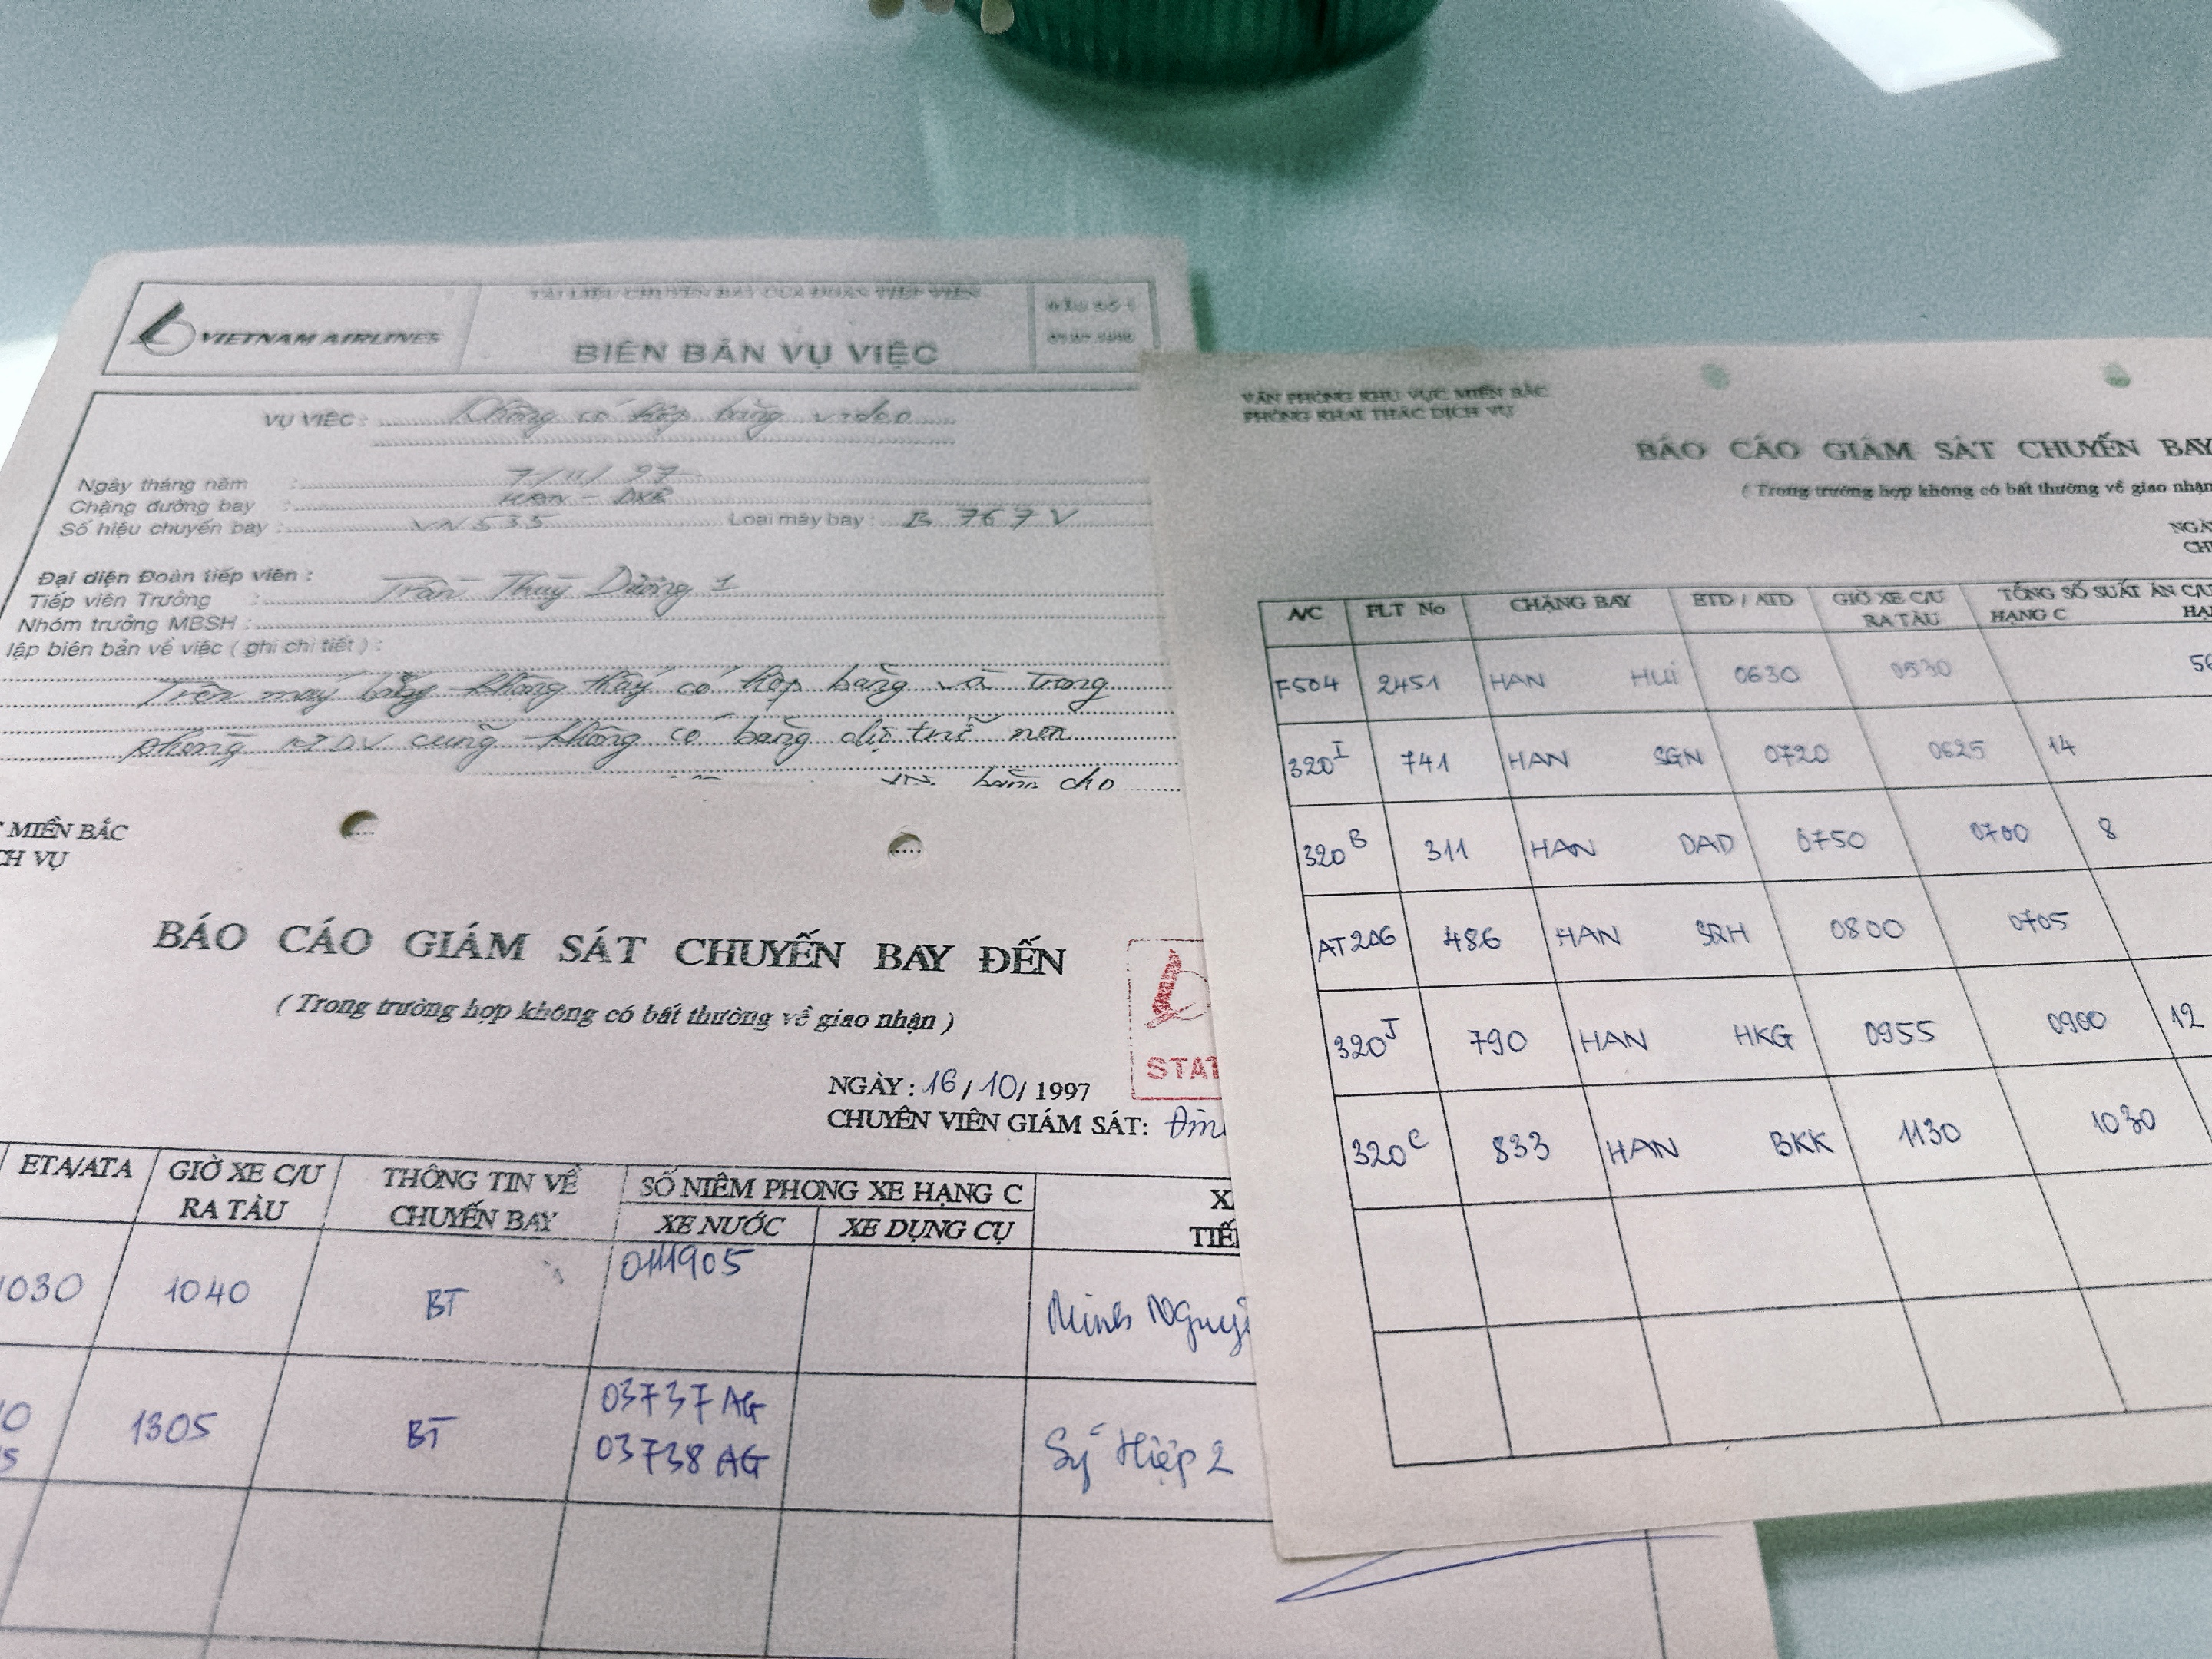 VIETNAM AIRLINES
TÀI LIỆU CHUYẾN BAY CỦA ĐOÀN TIẾP VIÊN
BIÊN BẢN VỤ VIỆC
MẪU SỐ 1
VỤ VIỆC : Không có hộp băng video
Ngày tháng năm : 7/11/97
Chặng đường bay : HAN - DXB
Số hiệu chuyến bay : VN535 Loại máy bay : B 767 V
Đại diện Đoàn tiếp viên :
Tiếp viên Trưởng : Trần Thuỳ Dương 1
Nhóm trưởng MBSH :
lập biên bản về việc ( ghi chi tiết ) :
Trên máy bay không thấy có hộp băng và trong
phòng KTDV cũng không có băng dự trữ nên
VN băng cho
MIỀN BẮC
CH VỤ
BÁO CÁO GIÁM SÁT CHUYẾN BAY ĐẾN
( Trong trường hợp không có bất thường về giao nhận )
STAT
NGÀY : 16/10/ 1997
CHUYÊN VIÊN GIÁM SÁT:
ETA/ATA GIỜ XE C/U RA TÀU THÔNG TIN VỀ CHUYẾN BAY SỐ NIÊM PHONG XE HẠNG C
XE NƯỚC XE DỤNG CỤ
1030 1040 BT 0111905 Minh Nguy
1305 BT 03737 AG
03738 AG Sỹ Hiệp 2
VĂN PHÒNG KHU VỰC MIỀN BẮC
PHÒNG KHAI THÁC DỊCH VỤ
BÁO CÁO GIÁM SÁT CHUYẾN BAY
( Trong trường hợp không có bất thường về giao nhận
A/C FLT No CHẶNG BAY ETD / ATD GIỜ XE C/U RA TÀU TỔNG SỐ SUẤT ĂN C/U
HẠNG C
F504 2451 HAN HUI 0630 0530 56
320I 741 HAN SGN 0720 0625 14
320B 311 HAN DAD 0750 0700 8
AT206 486 HAN SRH 0800 0705
320J 790 HAN HKG 0955 0900 12
320C 833 HAN BKK 1130 1030